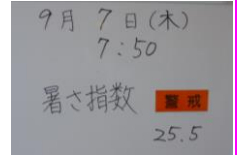 9月 7日(木)
7:50
暑さ指数 警戒
25.5